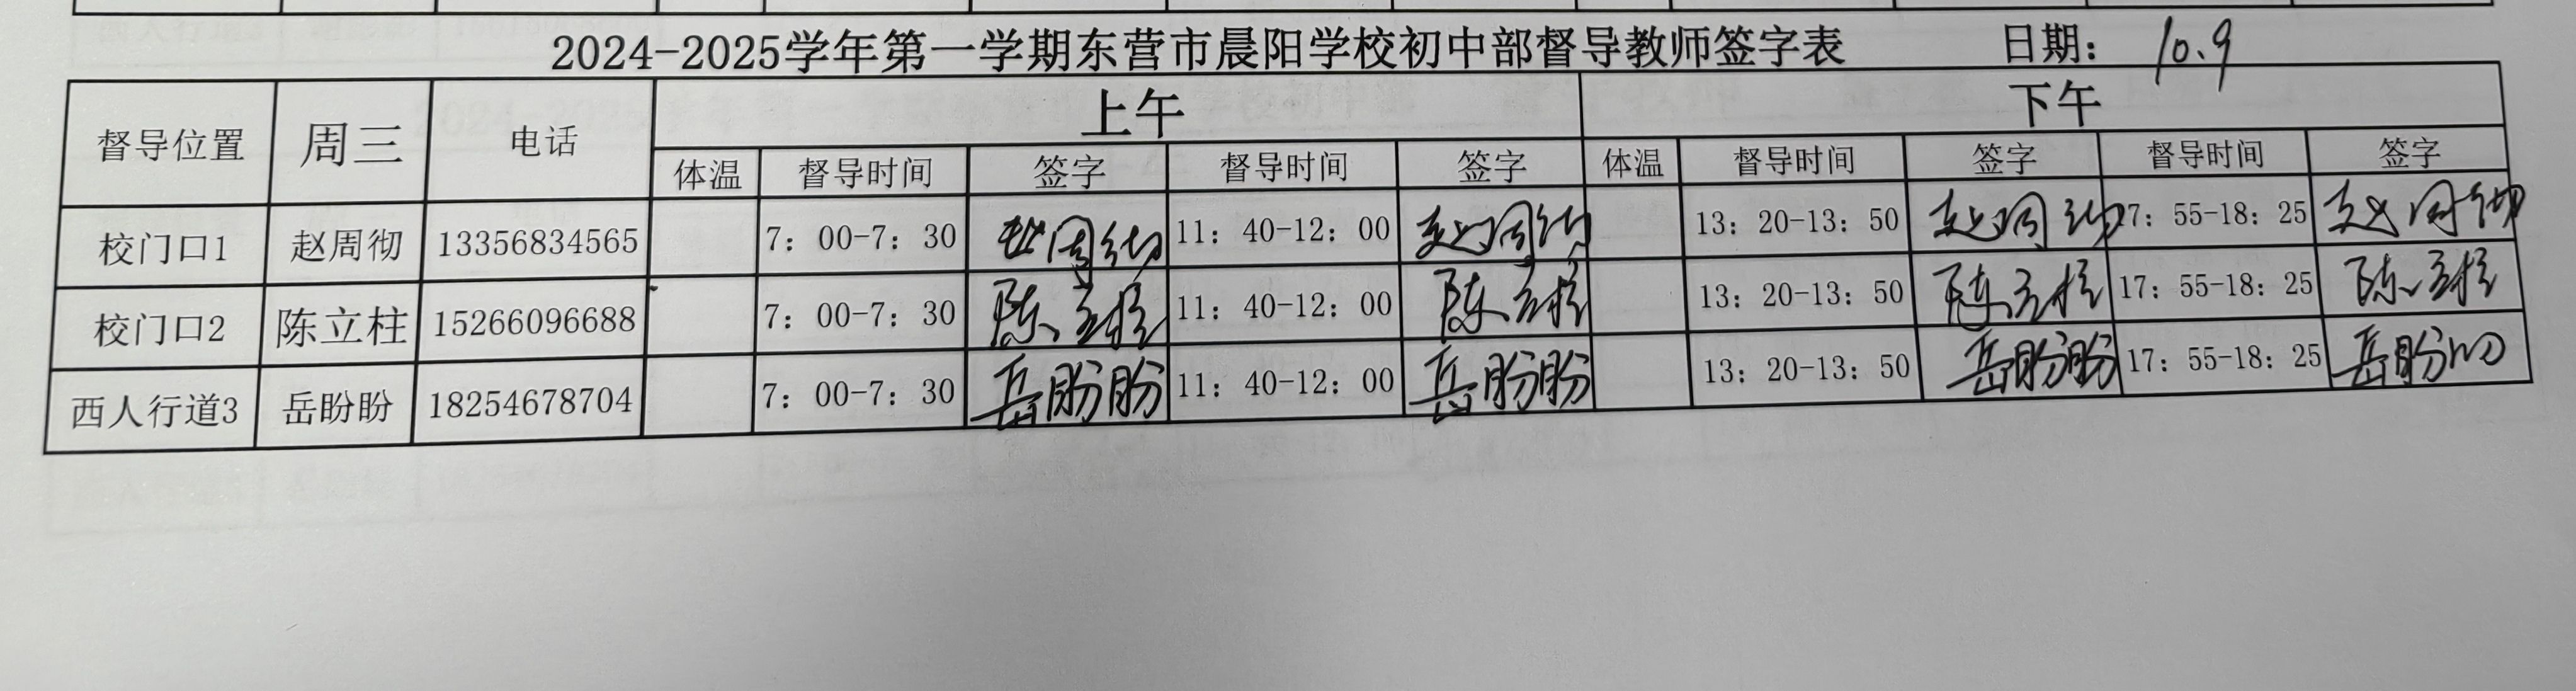 2024-2025学年第一学期东营市晨阳学校初中部督导教师签字表 日期: 10.9
督导位置 周三 电话 上午 下午
体温 督导时间 签字 督导时间 签字 体温 督导时间 签字 督导时间 签字
校门口1 赵周彻 13356834565 7: 00-7: 30 赵周彻 11: 40-12: 00 赵周彻 13: 20-13: 50 赵周彻 17: 55-18: 25 赵周彻
校门口2 陈立柱 15266096688 7: 00-7: 30 陈立柱 11: 40-12: 00 陈立柱 13: 20-13: 50 陈立柱 17: 55-18: 25 陈立柱
西人行道3 岳盼盼 18254678704 7: 00-7: 30 岳盼盼 11: 40-12: 00 岳盼盼 13: 20-13: 50 岳盼盼 17: 55-18: 25 岳盼